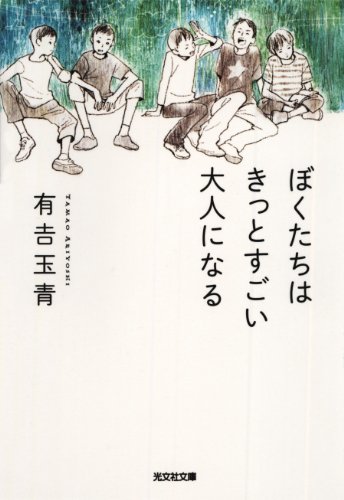 ぼくたちは
きっとすごい
大人になる
有吉玉青
TAMAO ARIYOSHI
光文社文庫